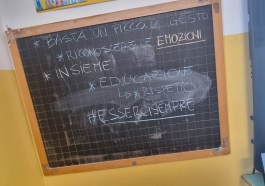 * BASTA UN PICCOLO GESTO
* RICONOSCERE LE EMOZIONI
* INSIEME
* EDUCAZIONE
RISPETTO
#ESSERCISEMPRE